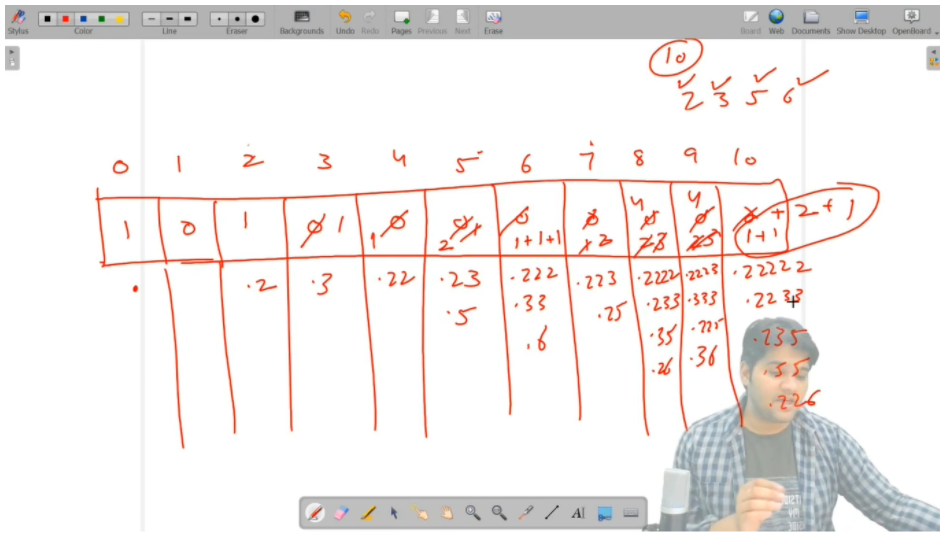 Stylus Color Line Eraser Backgrounds Undo Redo Pages Previous Next Erase Board Web Documents Show Desktop OpenBoard
10
2 3 5 6
0 1 2 3 4 5 6 7 8 9 10
1 0 1 0 1 1 0 2 0 1 0 0 4 4 + 2 + 1
1+1+1 1 2 2 3 2 3 1+1
. .2 .3 .22 .23 .222 .223 .2222 .2223 .22222
.5 .33 .25 .233 .333 .2233
.6 .35 .225 .235
.26 .36 .55
.226